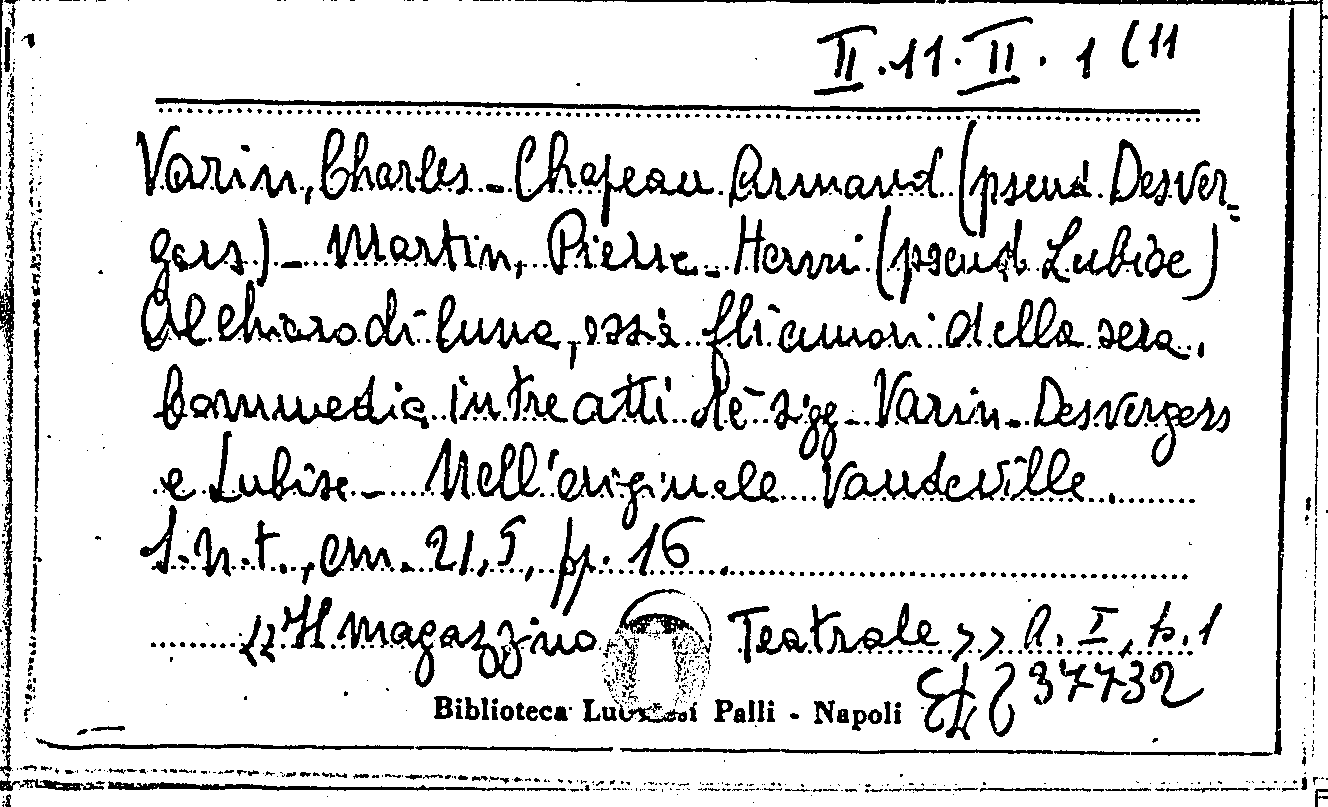 II.11.II.1 (11
Varin, Charles - Chapeau Armand (pseud. Desver-
gers) - Martin, Pierre - Henri (pseud. Lubise)
Al chiaro di luna, ossia gli amori della sera.
Commedia in tre atti de' sigg. Varin - Desvergers
e Lubise - Nell'originale Vaudeville.
S.n.t., cm. 21,5, pp. 16.
<<Il magazzino Teatrale>> A. I, p. 1
Biblioteca Lucchesi Palli - Napoli
37732